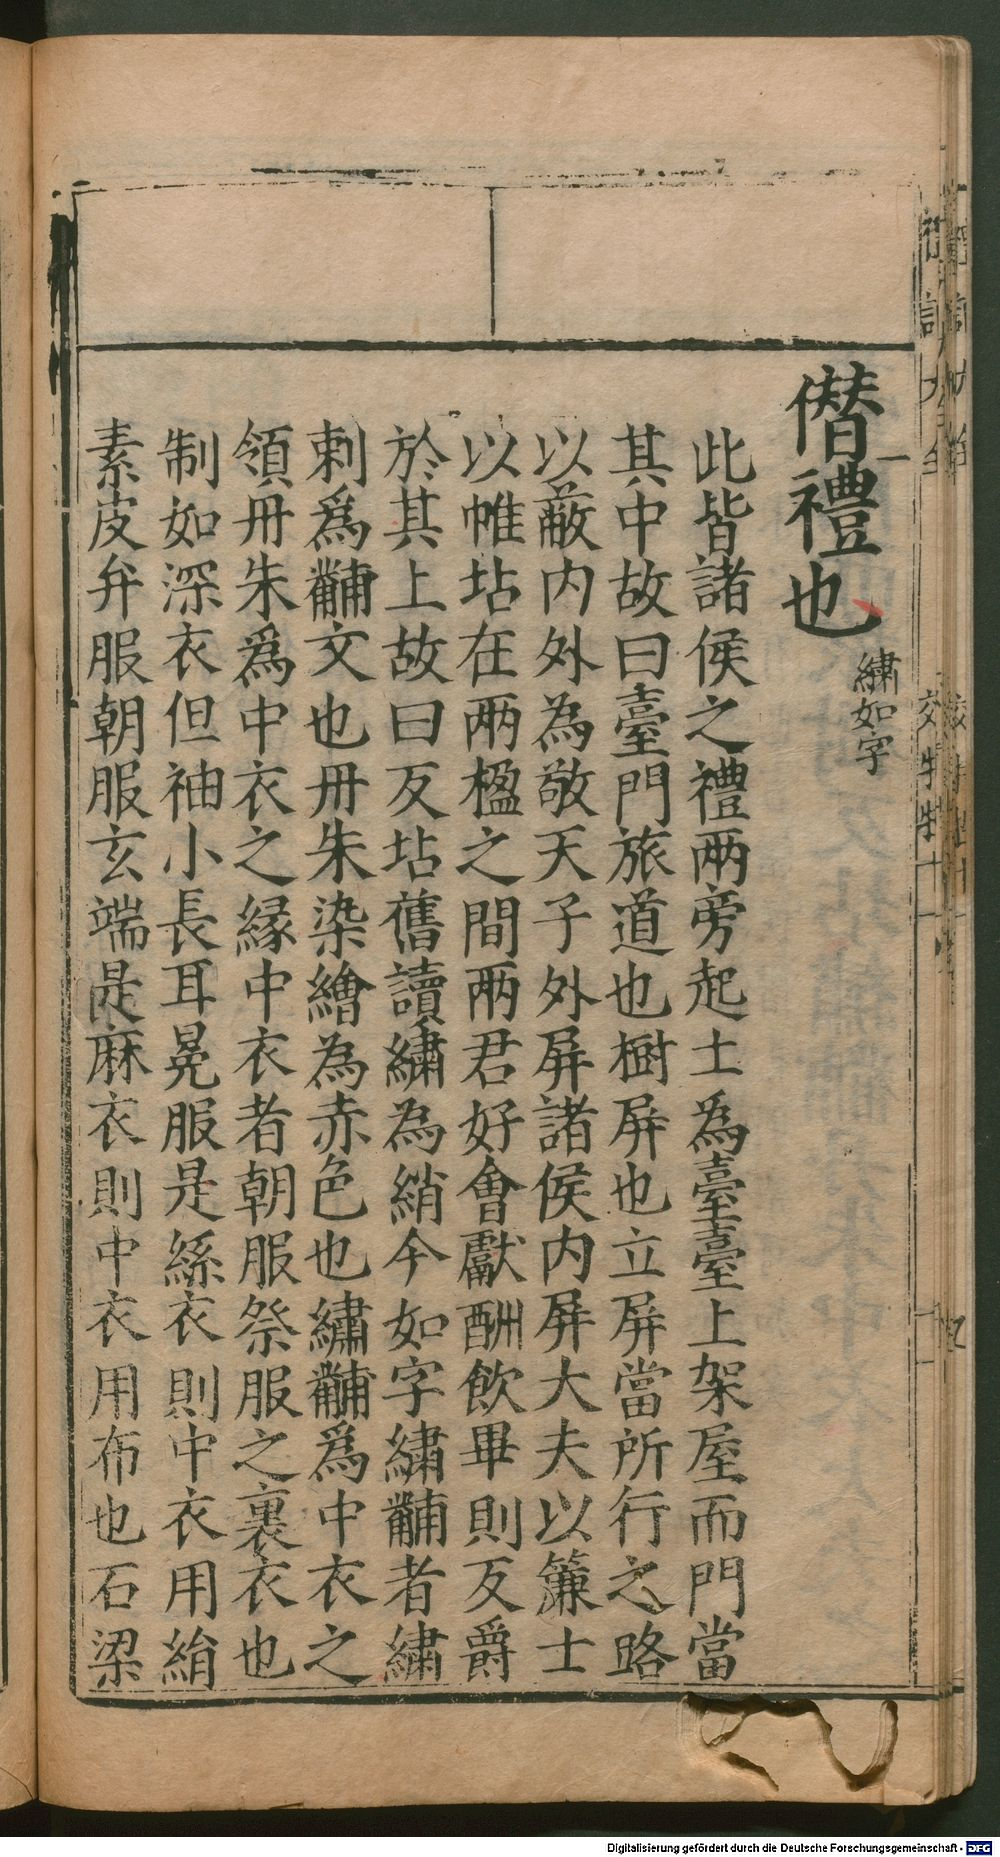 僣禮也
繡如字
此皆諸侯之禮兩旁起土為臺臺上架屋而門當
其中故曰臺門旅道也樹屏也立屏當所行之路
以蔽内外為敬天子外屏諸侯内屏大夫以簾士
以帷坫在兩楹之間兩君好會獻酬飲畢則反爵
於其上故曰反坫舊讀繡為綃今如字繡黼者繡
刺爲黼文也丹朱染繒為赤色也繡黼爲中衣之
領丹朱爲中衣之縁中衣者朝服祭服之裏衣也
制如深衣但袖小長耳冕服是絲衣則中衣用絹
素皮弁服朝服玄端是麻衣則中衣用布也石梁
Digitalisierung gefördert durch die Deutsche Forschungsgemeinschaft - DFG